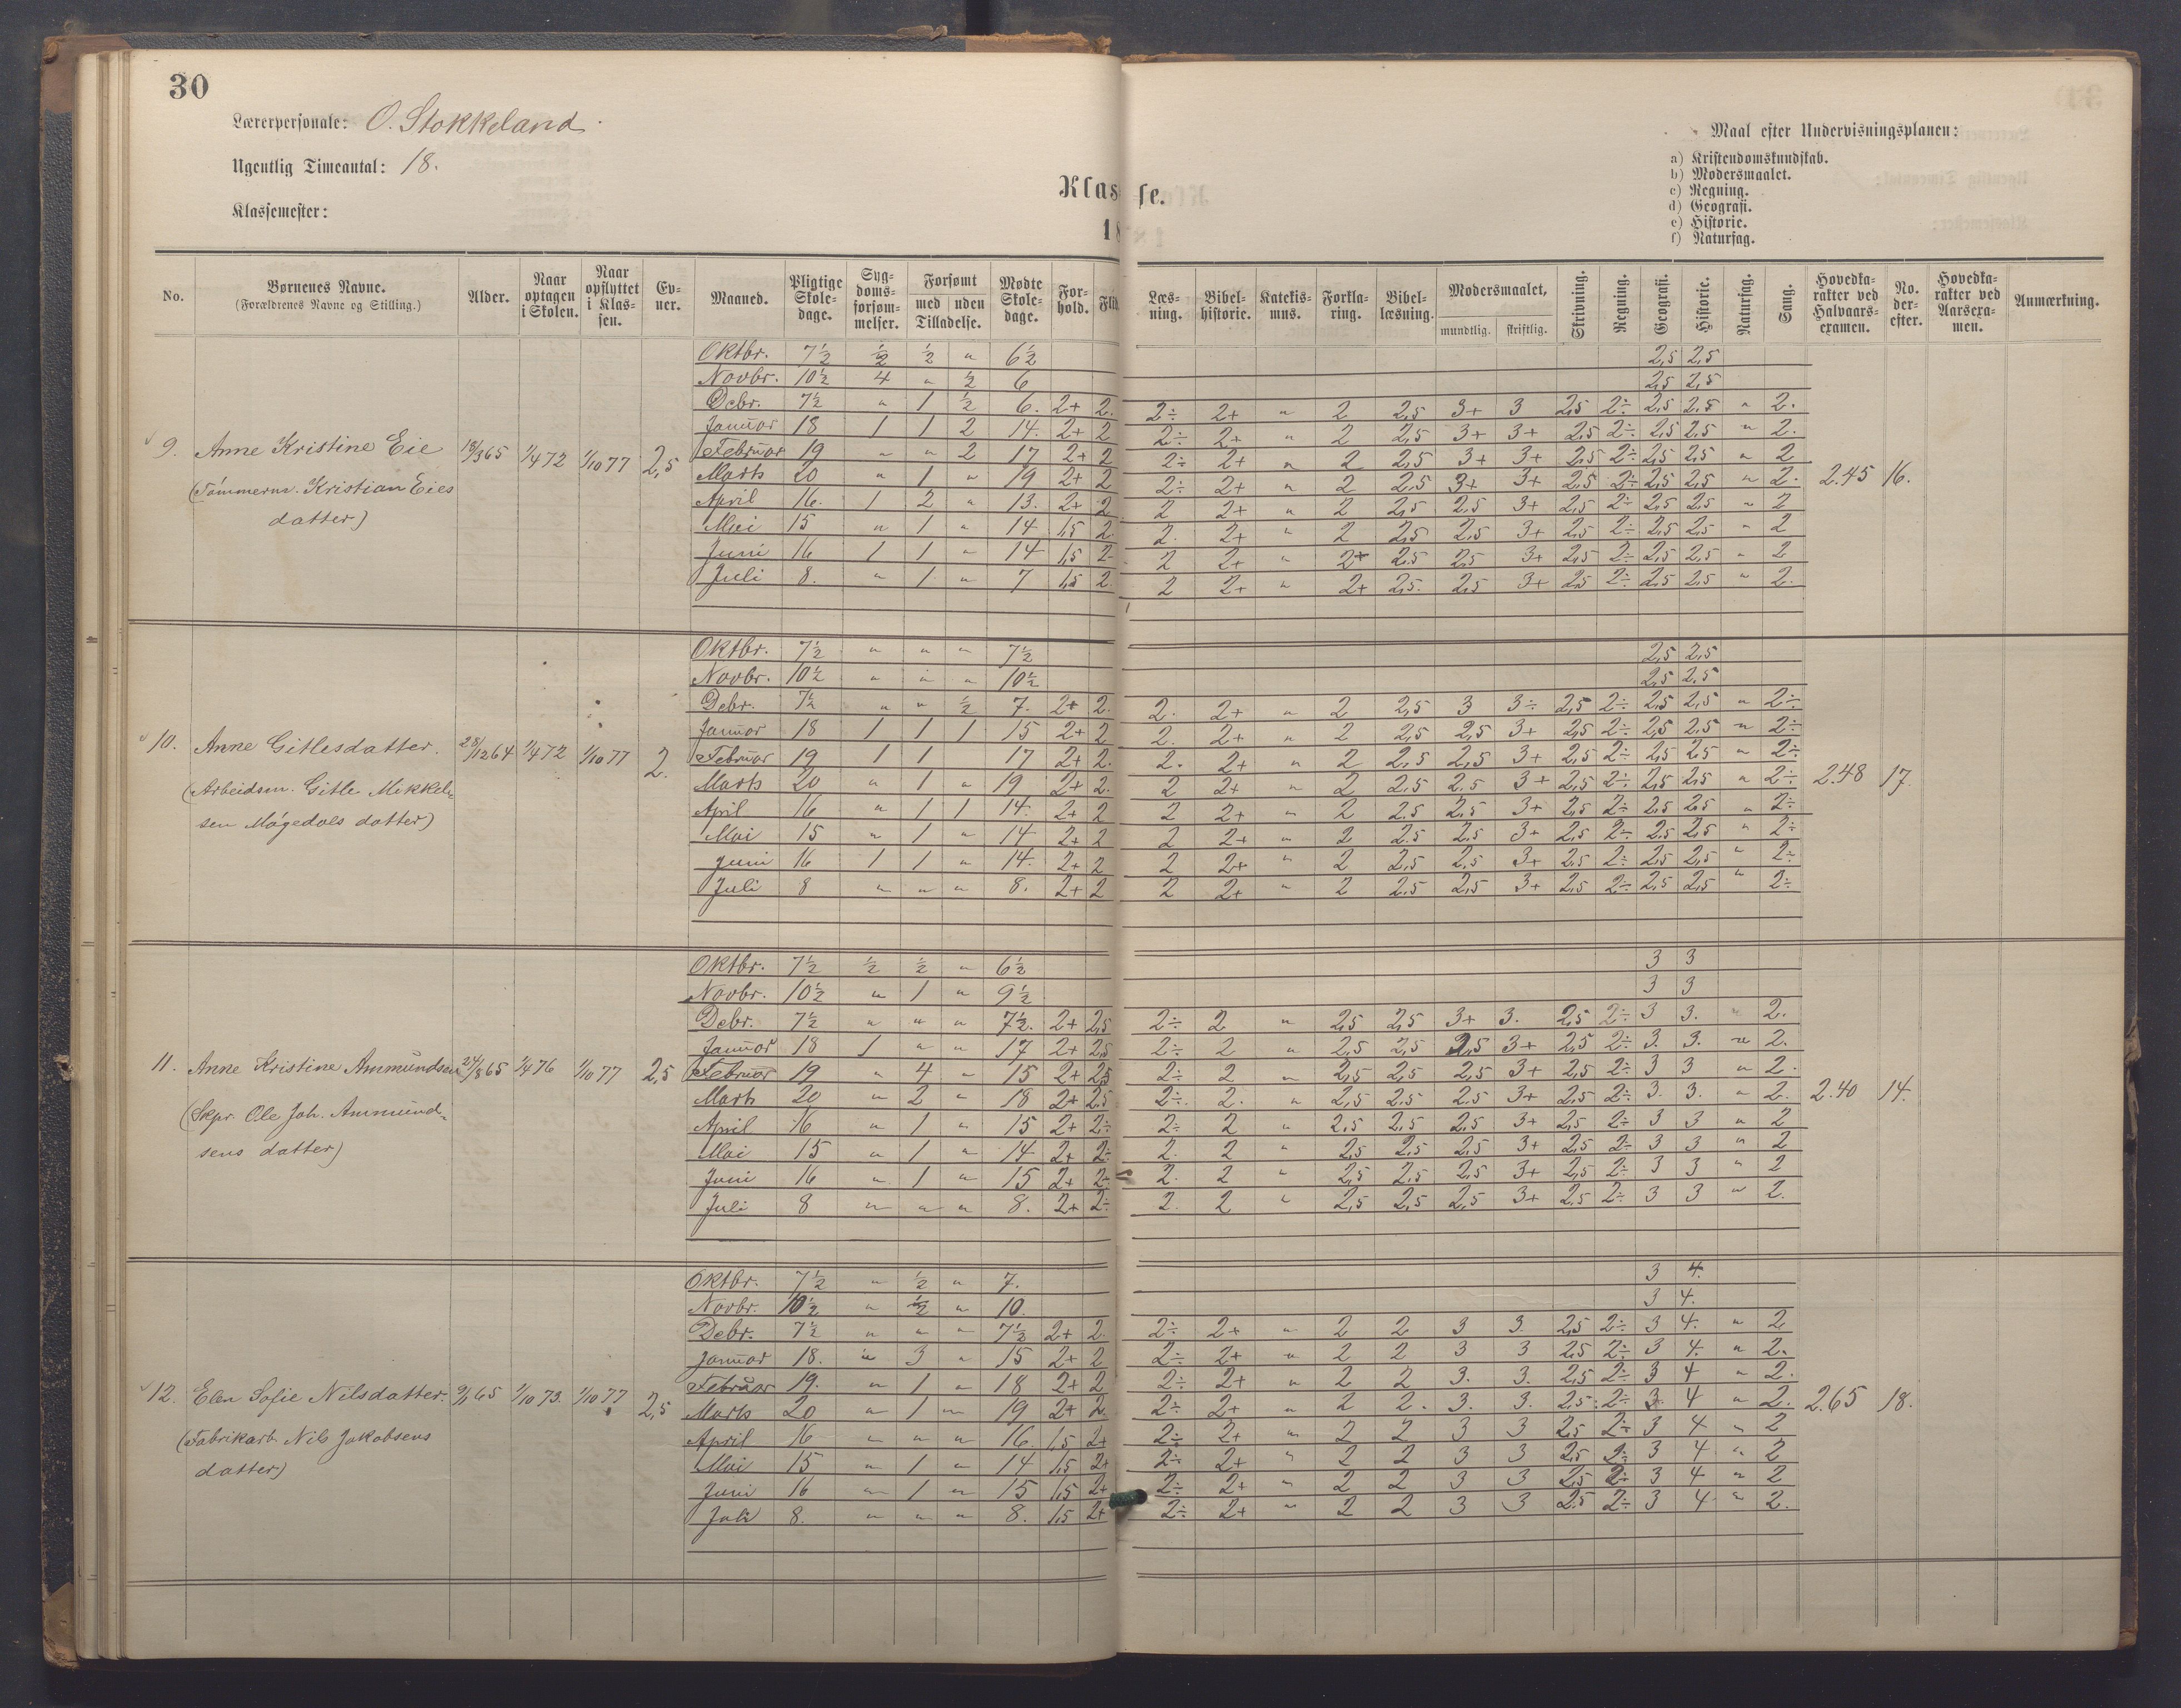 30
Lærerpersonale: O. Stokkeland.
Ugentlig Timeantal: 18.
Klassemester:
Klasse.
18
Maal efter Undervisningsplanen:
a) Kristendomskundskab.
b) Modersmaalet.
c) Regning.
d) Geografi.
e) Historie.
f) Naturfag.
No. Børnenes Navne. (Forældrenes Navne og Stilling.) Alder. Naar optagen i Skolen. Naar opflyttet i Klassen. Evner. Maaned. Pligtige Skoledage. Sygdomsforsømmelser. Forsømt med uden Tilladelse. Mødte Skoledage. Forhold. Flid Læsning. Bibelhistorie. Katekismus. Forklaring. Bibellæsning. Modersmaalet, mundtlig. skriftlig. Skrivning. Regning. Geografi. Historie. Naturfag. Sang. Hovedkarakter ved Halvaarsexamen. No. derefter. Hovedkarakter ved Aarsexamen. Anmærkning.
9. Anne Kristine Eie 18/3 65 1/4 72 1/10 77 2,5
(Tømmerm. Kristian Eies
datter)
Oktbr. 7½ ½ ½ " 6½ 2,5 2,5
Novbr. 10½ 4 " ½ 6 2,5 2,5
Debr. 7½ " 1 ½ 6. 2+ 2. 2÷ 2+ " 2 2,5 3+ 3 2,5 2÷ 2,5 2,5 " 2.
Januar 18 1 1 2 14. 2+ 2 2÷ 2+ " 2 2,5 3+ 3+ 2,5 2÷ 2,5 2,5 " 2.
Februar 19 " " 2 17 2+ 2 2÷ 2+ " 2 2,5 3+ 3+ 2,5 2÷ 2,5 2,5 " 2
Marts 20 " 1 " 19 2+ 2 2÷ 2+ " 2 2,5 3+ 3+ 2,5 2÷ 2,5 2,5 " 2. 2.45 16.
April 16. 1 2 " 13. 2+ 2 2 2+ " 2 2,5 2,5 3+ 2,5 2÷ 2,5 2,5 " 2
Mai 15 " 1 " 14 1,5 2. 2. 2+ " 2 2,5 2,5 3+ 2,5 2÷ 2,5 2,5 " 2
Juni 16 1 1 " 14 1,5 2 2 2+ " 2+ 2,5 2,5 3+ 2,5 2÷ 2,5 2,5 " 2
Juli 8. " 1 " 7 1,5 2. 2 2+ " 2+ 2,5. 2,5 3+ 2,5 2÷ 2,5 2,5 " 2.
10. Anne Gitlesdatter. 28/12 64 1/4 72 1/10 77 2.
(Arbeidsm. Gitle Mikkel-
sen Mågedals datter)
Oktbr. 7½ " " " 7½ 2,5 2,5
Novbr. 10½ " " " 10½ 2,5 2,5
Debr. 7½ " " ½ 7. 2+ 2. 2. 2+ " 2 2,5 3 3÷ 2,5 2÷ 2,5 2,5 " 2÷
Januar 18 1 1 1 15 2+ 2 2. 2+ " 2 2,5 2,5 3+ 2,5 2÷ 2,5 2,5 " 2÷
Februar 19 1 1 17 2+ 2. 2. 2+ " 2 2,5 2,5 3+ 2,5 2÷ 2,5 2,5 " 2÷
Marts 20 " 1 " 19 2+ 2. 2 2+ " 2 2,5 2,5 3+ 2,5 2÷ 2,5 2,5 " 2÷ 2.48 17.
April 16 " 1 1 14. 2+ 2 2 2+ " 2 2,5 2,5 3+ 2,5 2÷ 2,5 2,5 " 2÷
Mai 15 " 1 " 14 2+ 2 2 2+ " 2 2,5 2,5 3+ 2,5 2÷ 2,5 2,5 " 2÷
Juni 16 1 1 " 14. 2+ 2 2 2+ " 2 2,5 2,5 3+ 2,5 2÷ 2,5 2,5 " 2÷
Juli 8 " " " 8. 2+ 2 2 2+ " 2 2,5 2,5 3+ 2,5 2÷ 2,5 2,5 " 2÷
11. Anne Kristine Ammundsen 24/8 65 1/4 76 1/10 77 2,5
(Skpr. Ole Joh. Ammund-
sens datter)
Oktbr. 7½ ½ ½ " 6½ 3 3
Novbr. 10½ " 1 " 9½ 3 3
Debr. 7½ " " " 7½. 2+ 2,5 2÷ 2 " 2,5 2,5 3+ 3. 2,5 2÷ 3 3. " 2.
Januar 18 1 " " 17 2+ 2,5 2÷ 2 " 2,5 2,5 2,5 3+ 2,5 2÷ 3. 3. " 2.
Februar 19 " 4 " 15 2+ 2,5 2÷ 2 " 2,5 2,5 2,5 3+ 2,5 2÷ 3 3 " 2.
Marts 20 " 2 " 18 2+ 2,5 2÷. 2. " 2,5 2,5 2,5 3+ 2,5 2÷ 3. 3. " 2. 2.40 14.
April 16 " 1 " 15 2+ 2÷ 2÷ 2 " 2,5 2,5 2,5 3+ 2,5 2÷ 3 3 " 2
Mai 15 " 1 " 14 2+ 2÷ 2. 2 " 2,5 2,5 2,5 3+ 2,5 2÷ 3 3 " 2
Juni 16 " 1 " 15 2+ 2÷ 2. 2 " 2,5 2,5 2,5 3+ 2,5 2÷ 3 3 " 2
Juli 8 " " " 8. 2+ 2÷ 2. 2 " 2,5 2,5 2,5 3+ 2,5 2÷ 3 3 " 2.
12. Elen Sofie Nilsdatter. 9/1 65 1/10 73. 1/10 77 2,5
(Fabrikarb. Nils Jakobsens
datter)
Oktbr. 7½ " ½ " 7. 3 4.
Novbr. 10½ " ½ " 10. 3 4.
Debr. 7½ " " " 7½ 2+ 2. 2÷ 2+ " 2 2 3 3. 2,5 2÷ 3 4. " 2
Januar 18. " 3 " 15 2+ 2 2÷ 2+ " 2 2 3 3 2,5 2÷ 3 4. " 2.
Februar 19. " 1 " 18 2+ 2 2÷ 2+ " 2 2 3. 3. 2,5 2÷ 3 4 " 2.
Marts 20 " 1 " 19 2+ 2. 2÷ 2+ " 2 2. 3. 3. 2,5 2÷ 3 4 " 2. 2.65 18.
April 16 " " " 16. 1,5 2+ 2÷ 2+ " 2 2 3 3 2,5 2÷ 3 4 " 2
Mai 15 " 1 " 14 1,5 2+ 2÷ 2+ " 2 2 3 3 2,5 2÷ 3 4 " 2
Juni 16 " 1 " 15 1,5 2+ 2÷ 2+ " 2 2 3 3 2,5 2÷ 3 4 " 2
Juli 8. " " " 8. 1,5 2+ 2÷ 2+ " 2 2 3 3 2,5 2÷ 3 4 " 2.